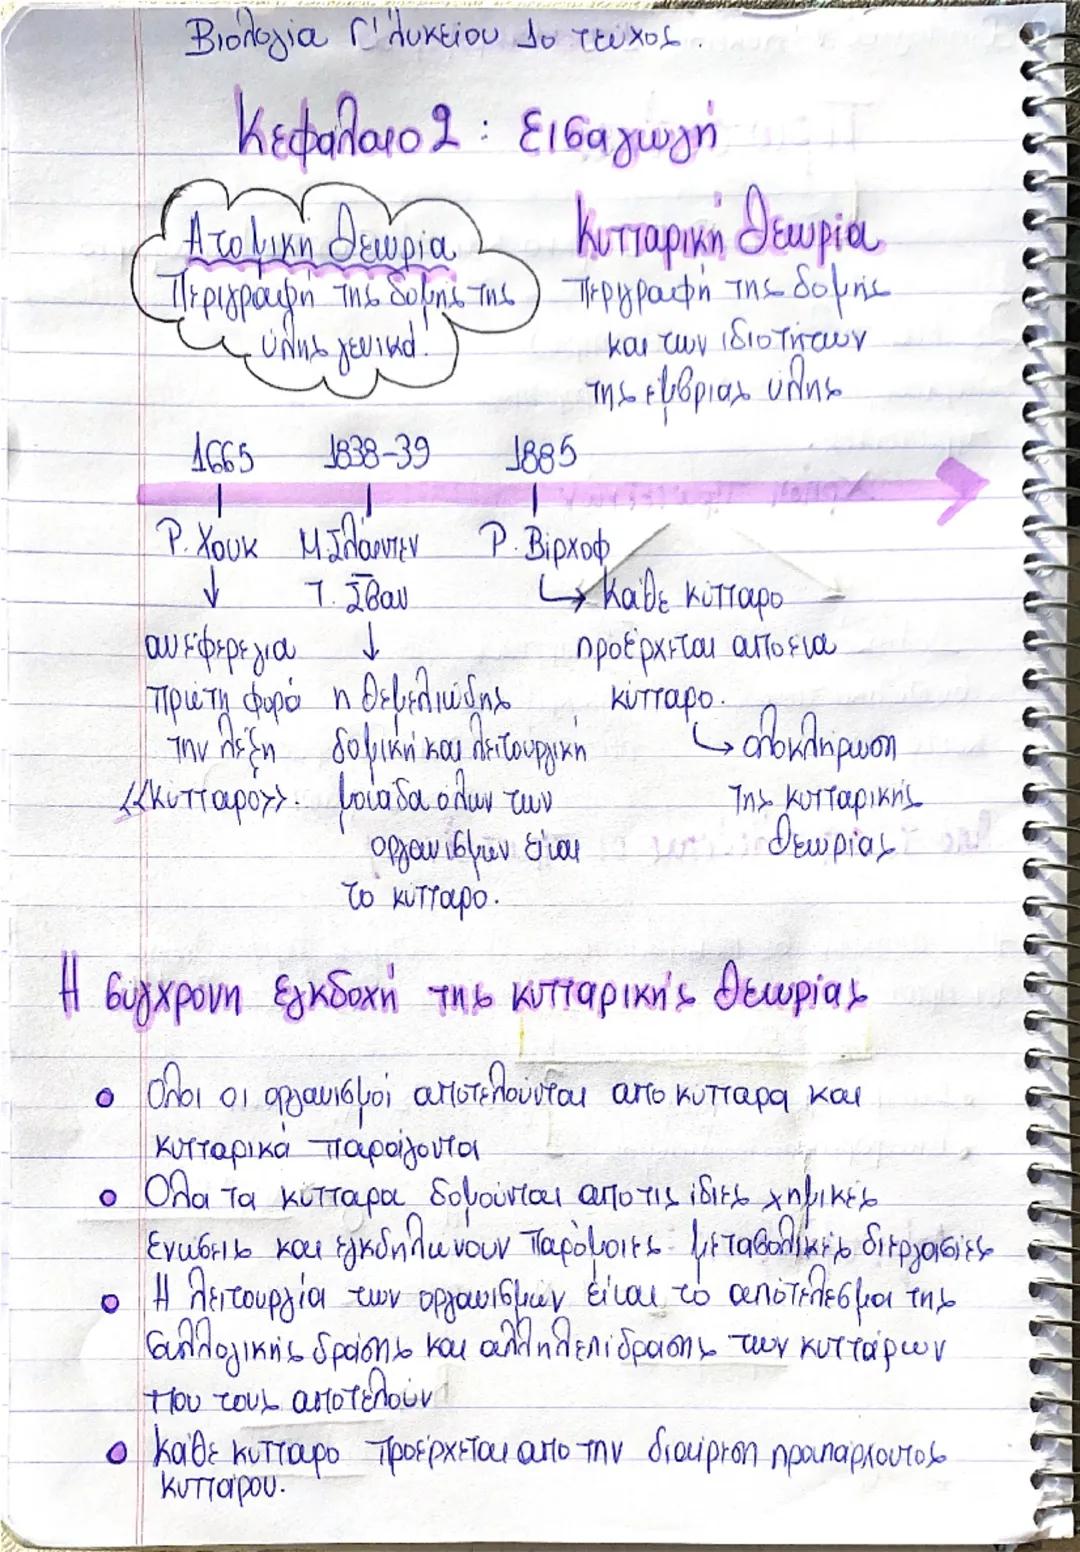 Βιολογία Γ' Λυκείου 1ο τεύχος.
Κεφάλαιο 2: Εισαγωγή
Ατομική Θεωρία
Περιγραφή της δομής της
ύλης γενικά!
Κυτταρική Θεωρία
Περιγραφή της δομής
και των ιδιοτήτων
της έμβριας ύλης
1665 1838-39 1885
Ρ. Χουκ Μ. Σλάιντεν Ρ. Βίρχοφ
↓ Τ. Σβαν ↳ Κάθε κύτταρο
ανέφερε για ↓ προέρχεται από ένα
πρώτη φορά η θεμελιώδης κύτταρο.
την λέξη δομική και λειτουργική ↳ ολοκλήρωση
<<Κύτταρο>>. μονάδα όλων των της κυτταρικής
οργανισμών είναι θεωρίας
το κύτταρο.
Η σύγχρονη εγκδοχή της κυτταρικής θεωρίας
• Όλοι οι οργανισμοί αποτελούνται απο κύτταρα και
κυτταρικά παράγοντα
• Όλα τα κύτταρα δομούνται απο τις ίδιες χημικές
ενώσεις και εγκδηλώνουν παρόμοιες μεταβολικές διεργασίες
• Η λειτουργία των οργανισμών είναι το αποτέλεσμα της
συλλογικής δράσης και αλληλεπίδρασης των κυττάρων
που τους αποτελούν
• Κάθε κύτταρο προέρχεται απο την διαίρεση προπάρχοντος
κυττάρου.